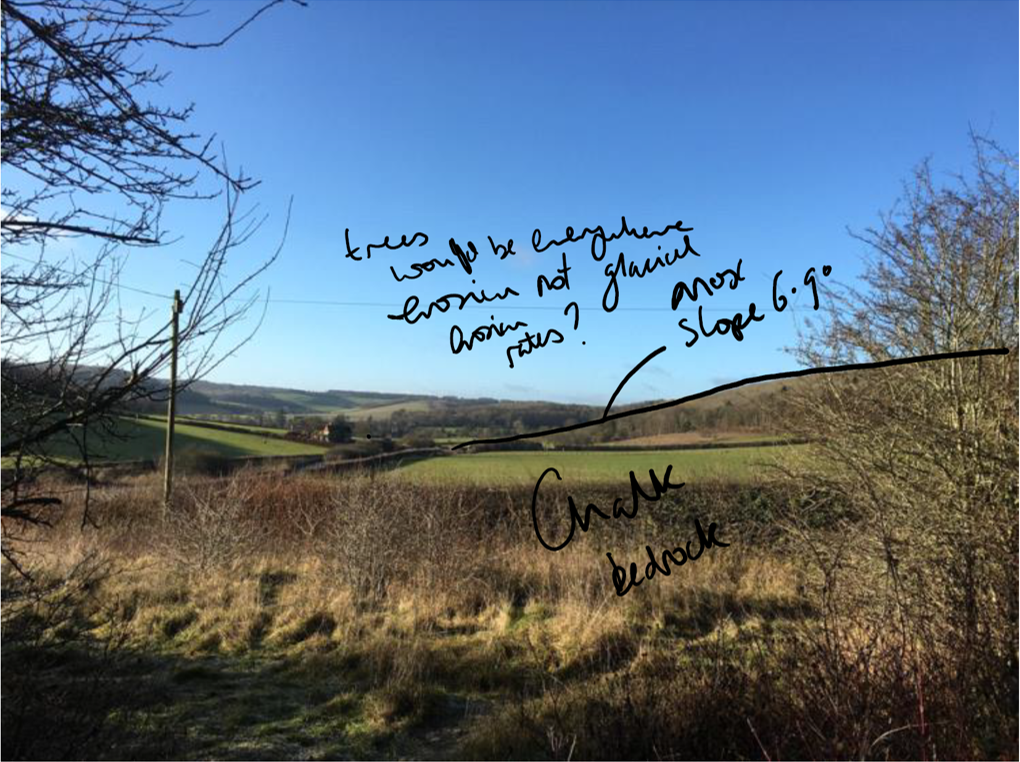 trees
would be everywhere
erosion not glacial
erosion
rates?
max
slope 6.9°
Chalk
bedrock